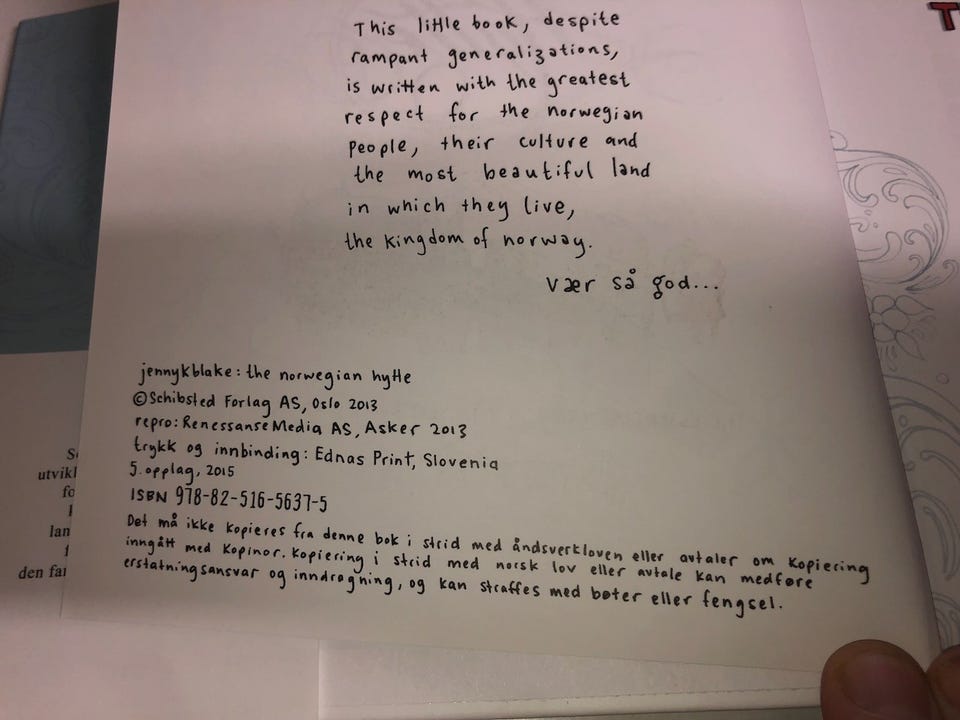 This little book, despite
rampant generalizations,
is written with the greatest
respect for the norwegian
people, their culture and
the most beautiful land
in which they live,
the kingdom of norway.
vær så god...
jennykblake: the norwegian hytte
©Schibsted Forlag AS, Oslo 2013
repro: Renessanse Media AS, Asker 2013
trykk og innbinding: Ednas Print, Slovenia
5. opplag, 2015
ISBN 978-82-516-5637-5
Det må ikke kopieres fra denne bok i strid med åndsverkloven eller avtaler om kopiering
inngått med Kopinor. Kopiering i strid med norsk lov eller avtale kan medføre
erstatningsansvar og inndragning, og kan straffes med bøter eller fengsel.
utvikl
fo
lan
f
den far
T